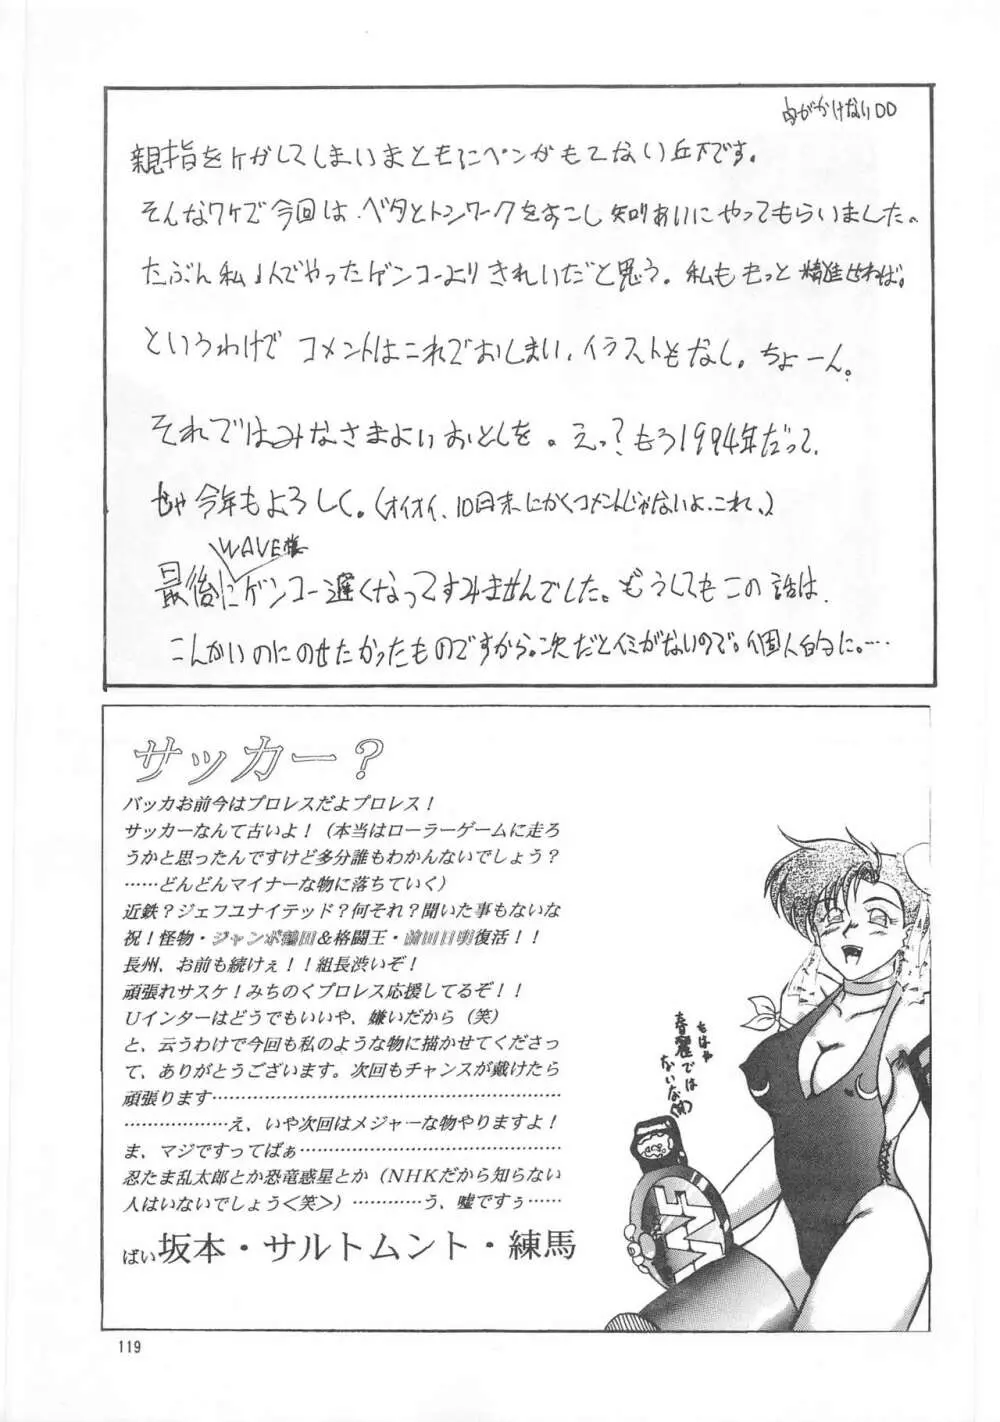 親指をケガしてしまいまともにペンがもてない丘下です。
そんなワケで今回は、ベタとトンワークをすこし知りあいにやってもらいました。
たぶん私1人でやったゲンコーよりきれいだと思う。私ももっと精進せねば。
というわけでコメントはこれでおしまい、イラストもなし。ちょーん。
それではみなさまよいおとしを。えっ?もう1994年だって、
じゃ今年もよろしく。(オイオイ、10月末にかくコメントじゃないよ、これ、)
WAVE様
最後にゲンコー遅くなってすみませんでした。どうしてもこの話は、
こんかいのにのせたかったものですから。次だとイミがないので。個人的に。……
サッカー?
バッカお前今はプロレスだよプロレス!
サッカーなんて古いよ!(本当はローラーゲームに走ろ
うかと思ったんですけど多分誰もわかんないでしょう?
……どんどんマイナーな物に落ちていく)
近鉄?ジェフユナイテッド?何それ?聞いた事もないな
祝!怪物・ジャンボ鶴田&格闘王・前田日明復活!!
長州、お前も続けぇ!!組長渋いぞ!
頑張れサスケ!みちのくプロレス応援してるぞ!!
Uインターはどうでもいいや、嫌いだから(笑)
と、云うわけで今回も私のような物に描かせてくださっ
て、ありがとうございます。次回もチャンスが戴けたら
頑張ります…………………………………………………
………………え、いや次回はメジャーな物やりますよ!
ま、マジですってばぁ……………………………………
忍たま乱太郎とか恐竜惑星とか(NHKだから知らない
人はいないでしょう<笑>)…………う、嘘ですぅ……
ばい坂本・サルトムント・練馬
もはや
春麗では
ないな(笑)
119